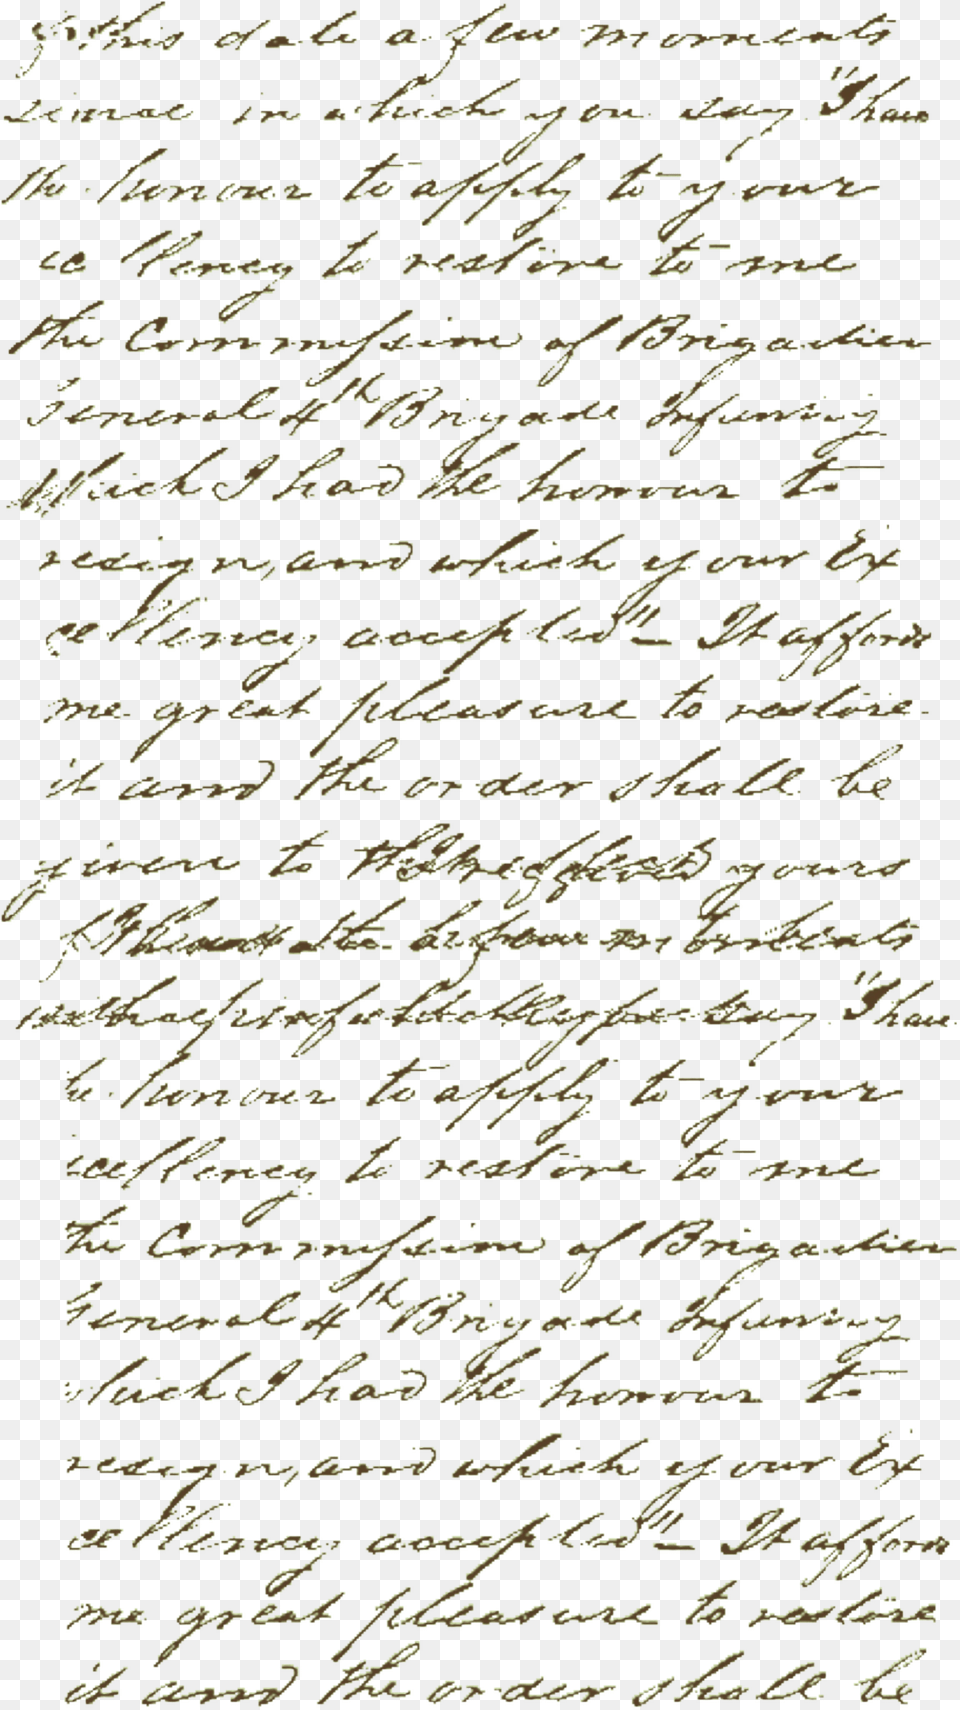 of this date a few moments
since in which you say "I have
the honour to apply to your
ce llency to restore to me
the Commission of Brigadier
General 4th Brigade Infantry
which I had the honour to
resign, and which your Ex
cellency accepted" — It affords
me great pleasure to restore
it and the order shall be
given to yours
moments
say "I have
honour to apply to your
cellency to restore to me
the Commission of Brigadier
General 4th Brigade Infantry
which I had the honour to
resign, and which your Ex
cellency accepted" — It affords
me great pleasure to restore
it and the order shall be